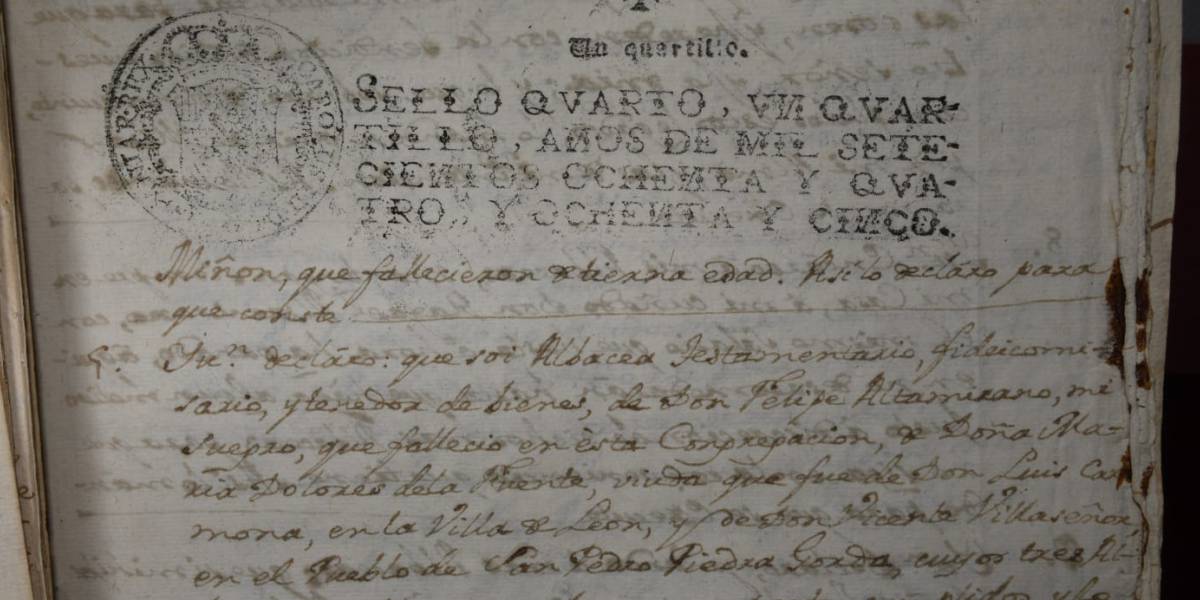 Un quartillo.
SELLO QVARTO, VN QVAR-
TILLO, AÑOS DE MIL SETE-
CIENTOS OCHENTA Y QVA-
TRO, Y OCHENTA Y CINCO.
Miñon, que fallecieron de tierna edad. Asi lo declaro para
que conste
5. Itn. declaro: que soi Albacea Testamentario, fideicomi-
sario, y tenedor de bienes, de Don Felipe Altamirano, mi
suegro, que fallecio en èsta Congregacion, de Doña Ma-
ria Dolores dela Fuente, viuda que fue de Don Luis Car
mona, en la Villa de Leon, y de Don Vicente Villaseñor,
en el Pueblo de San Pedro Piedra Gorda, cuyos tres Al-